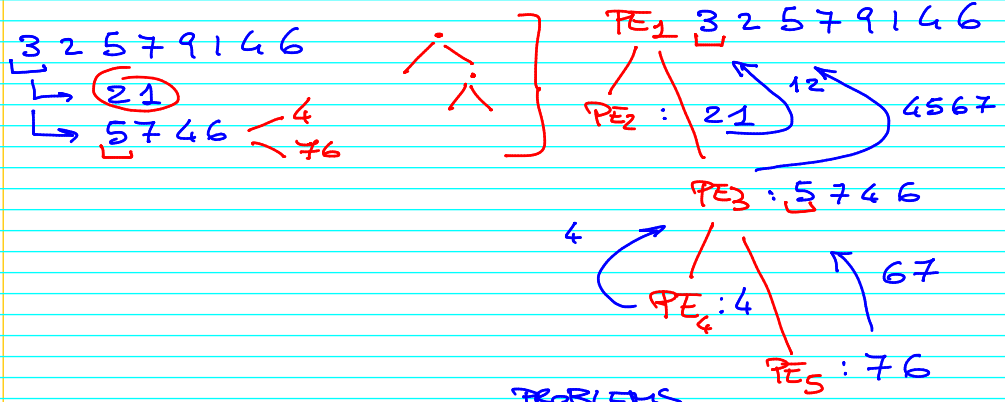 3 2 5 7 9 1 4 6
2 1
5 7 4 6
4
76
PE1 3 2 5 7 9 1 4 6
PE2 : 21
12
4567
PE3 : 5 7 4 6
4
67
PE4 : 4
PE5 : 76
PROBLEMS